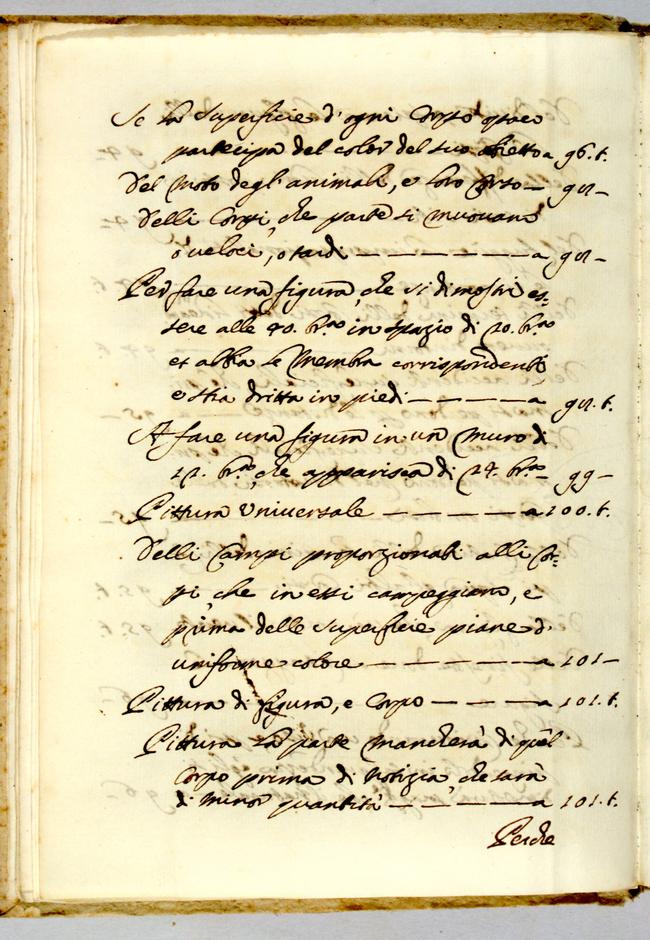 Se la Superficie d'ogni Corpo opaco
partecipa del color del suo obietto a 96. t.
Del Moto degl'animali, e loro Corso — 98 —
Delli Corpi, che parte si muouano
o ueloci, o tardi — — — — — — a 98 —
Per fare una figura, che si dimostri es=
sere alle 40. br.ᵃ in spazio di 20. br.ᵃ
et abbia le Membra corrispondenti
e stia dritta in piedi — — — — a 98. t.
A fare una figura in un Muro di
12. br.ᵃ che apparisca di 24. br.ᵃ — 99 —
Pittura Vniuersale — — — — — a 100. t.
Delli Campi proporzionali alli Cor=
pi, che in essi campeggiano, e
prima delle Superficie piane d'
uniforme colore — — — — — a 101 —
Pittura di figura, e Corpo — — — a 101. t.
Pittura la parte Mancherà di quel
Corpo prima di Notizia, che sarà
di minor quantità — — — — — a 101. t.
Perche